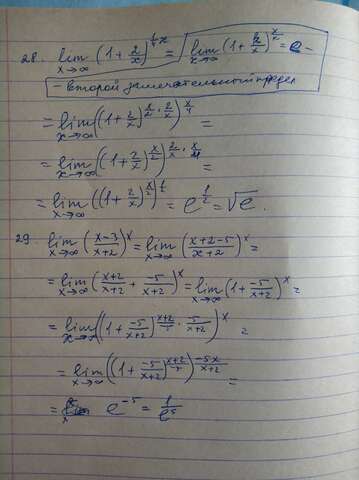 28. lim x→∞ (1 + 2/x)^(1/4 x) = lim x→∞ (1 + k/x)^(x/k) = e -
- второй замечательный предел
= lim x→∞ ((1 + 2/x)^(x/2 · 2/x))^(x/4) =
= lim x→∞ ((1 + 2/x)^(x/2))^(2/x · x/4) =
= lim x→∞ ((1 + 2/x)^(x/2))^(1/2) = e^(1/2) = √e.
29. lim x→∞ ((x-3)/(x+2))^x = lim x→∞ ((x+2-5)/(x+2))^x =
= lim x→∞ ((x+2)/(x+2) + (-5)/(x+2))^x = lim x→∞ (1 + (-5)/(x+2))^x =
= lim x→∞ ((1 + (-5)/(x+2))^((x+2)/(-5) · (-5)/(x+2)))^x =
= lim x→∞ ((1 + (-5)/(x+2))^((x+2)/(-5)))^(-5x/(x+2)) =
= e^(-5) = 1/e^5